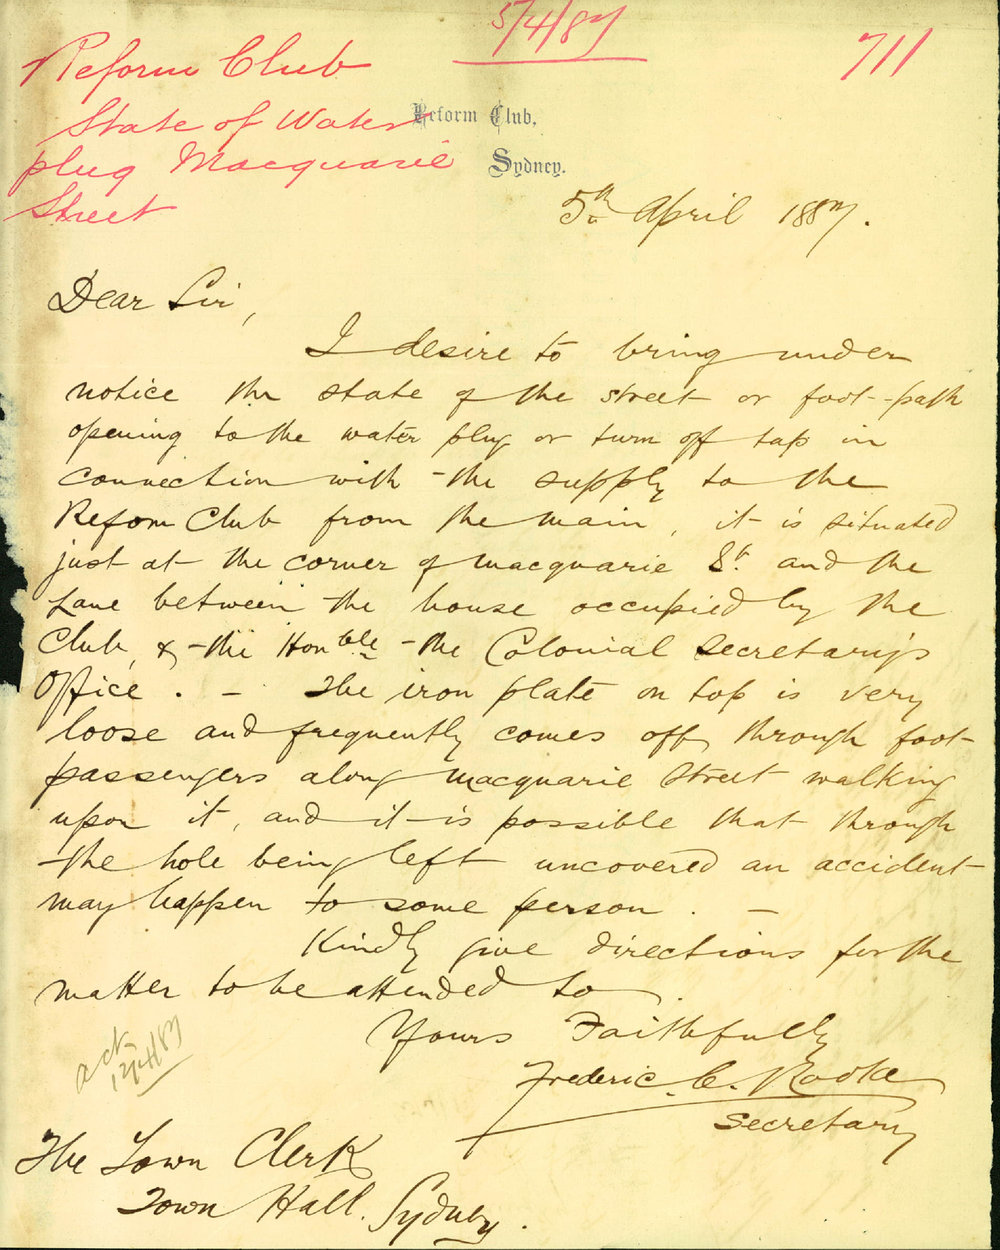 5/4/87
711
Reform Club
State of Water
plug Macquarie
Street
Reform Club,
Sydney.
5th April 1887.
Dear Sir,
I desire to bring under
notice the state of the street or foot-path
opening to the water plug or turn off tap in
connection with the supply to the
Reform Club from the main, it is situated
just at the corner of Macquarie St. and the
Lane between the house occupied by the
Club, & the Honble the Colonial Secretary's
Office. - The iron plate on top is very
loose and frequently comes off, through foot-
passengers along Macquarie Street walking
upon it, and it is possible that through
the hole being left uncovered an accident
may happen to some person. -
Kindly give directions for the
matter to be attended to.
Yours Faithfully
Frederic. C. Rooke
Secretary
12/4/87
The Town Clerk
Town Hall. Sydney.